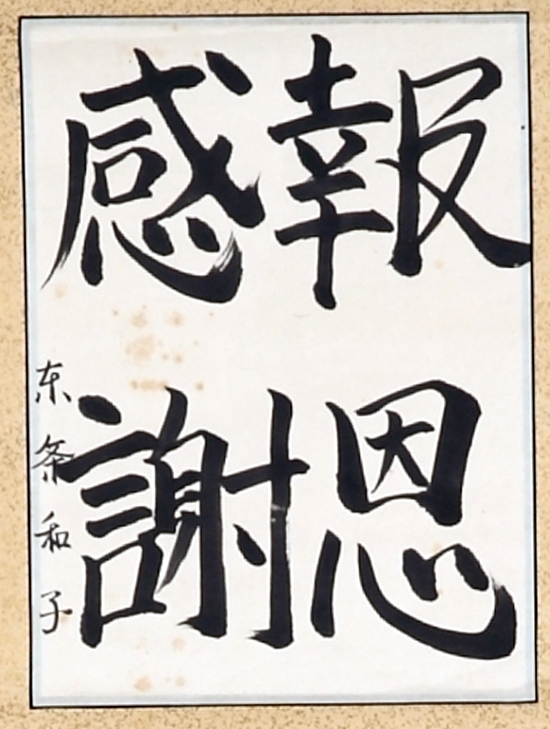 報恩
感謝
东条和子